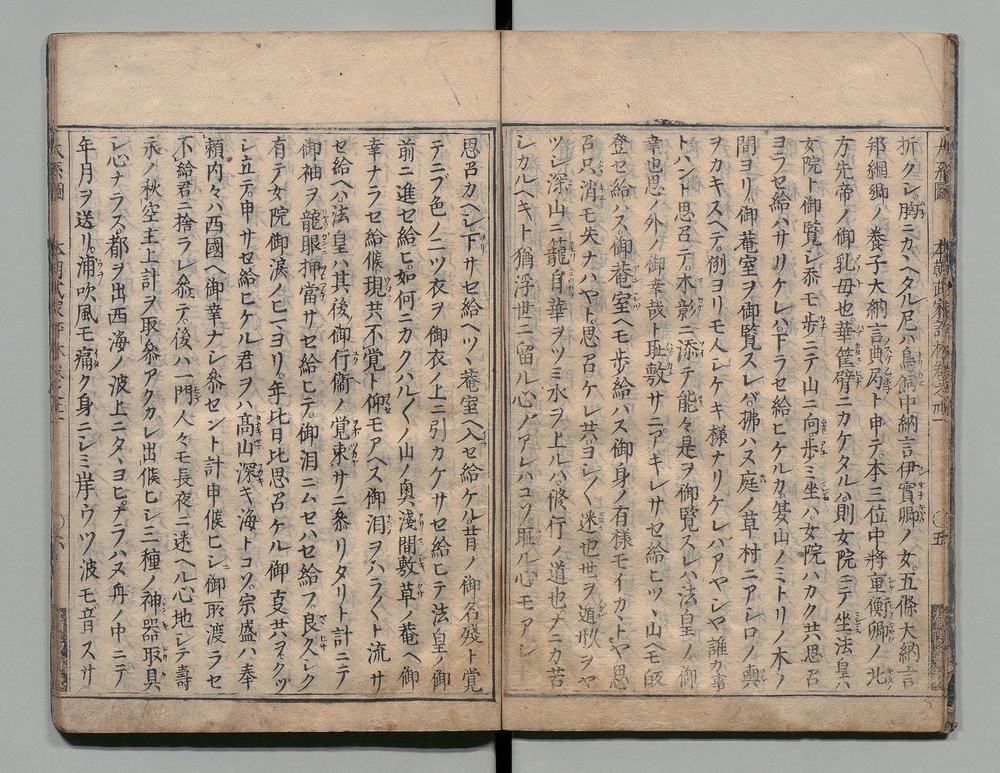 折クシ胸ニカヽヘタル尼ハ鳥飼中納言伊實卿ノ女五條大納言
邦綱卿ノ養子大納言典局ト申テ本三位中將重衡卿ノ北
方先帝ノ御乳母也華筐臂ニカケタルハ則女院ニテ坐法皇ハ
女院ト御覧シ忝モ歩ニテ山ニ向歩ミ坐ハ女院ハカク共思召
ヨラセ給ハサリケレハ下ラセ給ヒケルカ夏山ノミトリノ木ノ
間ヨリ御菴室ヲ御覧スレハ拂ハヌ庭ノ草村ニアシロノ輿
ヲカキスヘテ例ヨリモ人シケキ様ナリケレハアヤシヤ誰カ事
トハント思召テ木影ニ添テ能々是ヲ御覧スレハ法皇ノ御
幸也思ノ外ノ御幸哉ト耻敷サニアキレサセ給ヒツヽ山ヘモ皈
登セ給ハス御菴室ヘモ歩給ハス御身ノ有様モイカヽトヤ思
召只消モ失ナハヤト思召ケレ共ヨシ〱迷也世ヲ遁形ヲヤ
ツシ深山ニ籠自華ヲツミ水ヲ上ルハ修行ノ道也ナニカ苦
シカルヘキト猶浮世ニ留ル心ノアレハコソ耻ル心モアレ
思召カヘシ下サセ給ヘツヽ菴室ヘ入セ給ケル昔ノ御名殘ト覚
テニブ色ノ二ツ衣ヲ御衣ノ上ニ引カケサセ給ヒテ法皇ノ御
前ニ進セ給ヒ如何ニカクハル〱ノ山ノ奥淺間敷草ノ菴ヘ御
幸ナラセ給候現共不覚ト仰モアヘス御泪ヲハラ〱ト流サ
セ給ヘハ法皇ハ其後御行衛ノ覚束サニ参リタリト計ニテ
御袖ヲ龍眼押當サセ給ヒテ御泪ニムセハセ給フ良久シク
有テ女院御涙ノヒマヨリ年比日比思召ケル御支共ヲクツ
シ立テ申サセ給ヒケル君ヲハ高山深キ海トコソ宗盛ハ奉
頼内々ハ西國ヘ御幸ナシ参セント計申候ヒシ御取渡ラセ
不給君ニ捨ラレ参テ後ハ一門人々モ長夜ニ迷ヘル心地シテ壽
永ノ秋空主上計ヲ取参アクカレ出候ヒシ三種ノ神器取具
シ心ナラス都ヲ出西海ノ波上ニタヽヨヒナラハヌ舟ノ中ニテ
年月ヲ送リ浦吹風モ痛ク身ニシミ岸ウツ波モ音スサ